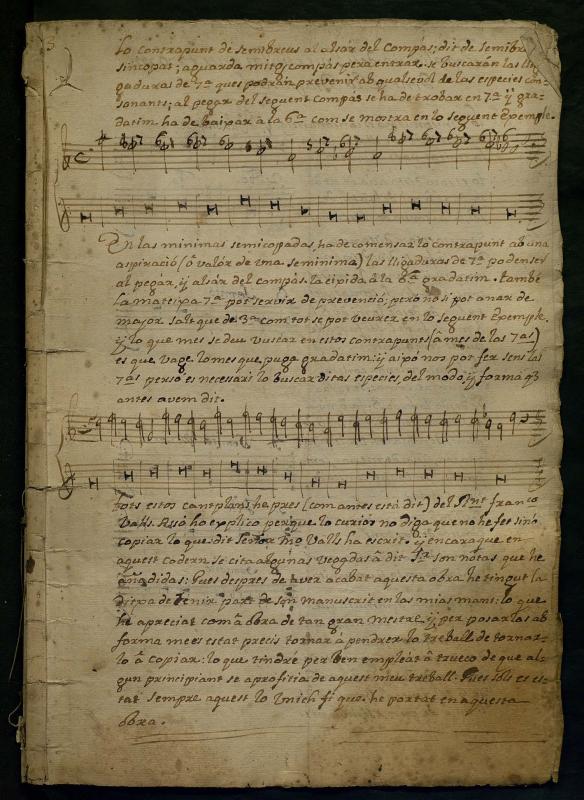 Lo contrapunt de semibreus al alsar del Compás; dit de semibre
sincopat; aguarda mitg compás pera entrar. se buscarán las lli
gaduras de 7ª ques podrán prevenir ab qualsevol de las especies con
sonants; al pegar del seguent compás se ha de trobar en 7ª y gra-
datim ha de baixar á la 6ª com se mostra en lo seguent Exemple.
En las minimas semicopadas, ha de comensar lo contrapunt ab una
aspiració (ó valor de una seminima) las lligaduras de 7ª poden ser
al pegar, y alsar del compás. la exida á la 6ª gradatim. també
la mateixa 7ª pot servir de prevenció; peró no si pot anar de
major salt que de 3ª com tot se pot veurer en lo seguent Exemple.
y lo que mes se deu buscar en estos contrapunts (á mes de las 7as)
es que vage lo mes que puga gradatim: y aixó nos pot fer sens las
7as perso es necessari lo buscar ditas especies, del modo, y forma q̃
antes avem dit.
tots estos cantplans he pres (com antes está dit) del Rnt franco
Valls. Assó ho explico perque lo curios no diga que no he fet sinó
copiar lo que dit señor Valls ha escrit; y encara que en
aquest codern se cita algunas vegadas á dit Sr son notas que he
añadidas: Pues despres de aver acabat aquesta obra he tingut la
dicha de tenir part de son manuscrit en las mias mans: lo que
he apreciat com á obra de tan gran mestre, y per posarlas ab
forma mees estat precis tornar á pendrer lo treball de tornar-
lo á copiar: lo que tindre per ben empleat á trueco de que al-
gun principiant se aprofitia de aquest meu treball. Pues sols es es-
tat sempre aquest lo unich fi que he portat en aquesta
obra.